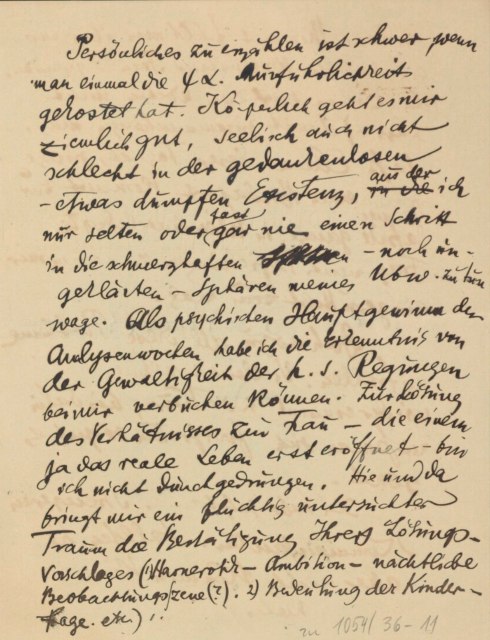 Persönliches zu erzählen ist schwer wenn
man einmal die ψα. Ausführlichkeit
gekostet hat. Körperlich geht es mir
ziemlich gut, seelisch auch nicht
schlecht in der gedankenlosen
- etwas dumpfen Existenz, aus der in die ich
nur selten oder fast gar nie einen Schritt
in die schmerzhaften - noch un-
geklärten - Sphären meines Ubw. zu tun
wage. Als psychischen Hauptgewinn der
Analysenwochen habe ich die Erkenntnis von
der Gewaltigkeit der h. s. Regungen
bei mir verbuchen können. Zur Lösung
des Verhältnisses zur Frau - die einem
ja das reale Leben erst eröffnet - bin
ich nicht durchgedrungen. Hie und da
bringt mir ein flüchtig untersuchter
Traum die Bestätigung Ihres Lösungs-
vorschlages (1) Harnerotik - Ambition - nächtliche
Beobachtungsszene (?). 2) Bedeutung der Kinder-
frage. etc.)
zu 1054/36-11